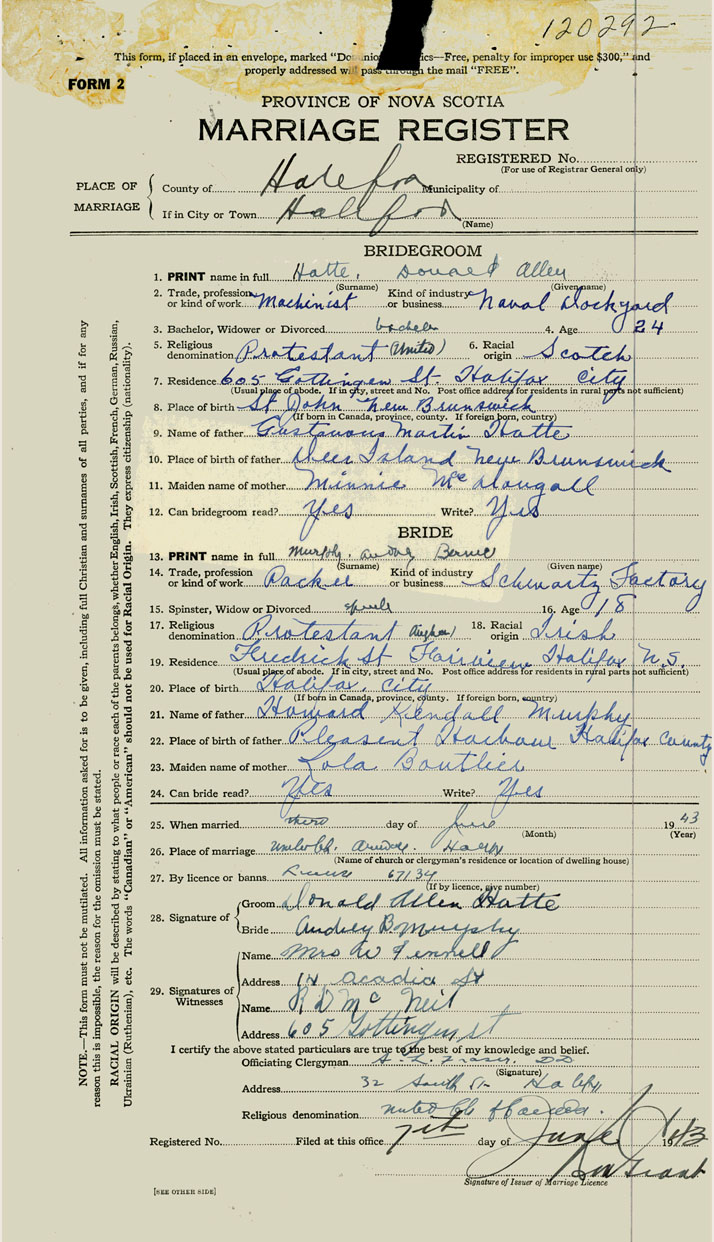 120292
This form, if placed in an envelope, marked "Do nion ics—Free, penalty for improper use $300," and
properly addressed will pass through the mail "FREE".
FORM 2
PROVINCE OF NOVA SCOTIA
MARRIAGE REGISTER
REGISTERED No.
(For use of Registrar General only)
PLACE OF MARRIAGE
County of Halifax Municipality of
If in City or Town Halifax
(Name)
BRIDEGROOM
1. PRINT name in full Hatte, Donald Allen
(Surname) (Given name)
2. Trade, profession or kind of work Machinist Kind of industry or business Naval Dockyard
3. Bachelor, Widower or Divorced bachelor 4. Age 24
5. Religious denomination Protestant (United) 6. Racial origin Scotch
7. Residence 605 Gottingen St. Halifax City
(Usual place of abode. If in city, street and No. Post office address for residents in rural parts not sufficient)
8. Place of birth St John New Brunswick
(If born in Canada, province, county. If foreign born, country)
9. Name of father Gustavous Martin Hatte
10. Place of birth of father Deer Island New Brunswick
11. Maiden name of mother Minnie McDougall
12. Can bridegroom read? Yes Write? Yes
BRIDE
13. PRINT name in full Murphy, Audrey
(Surname) (Given name)
14. Trade, profession or kind of work Packer Kind of industry or business Schwartz Factory
15. Spinster, Widow or Divorced 16. Age 18
17. Religious denomination Protestant 18. Racial origin Irish
19. Residence Fredrick St Fairview Halifax N.S.
(Usual place of abode. If in city, street and No. Post office address for residents in rural parts not sufficient)
20. Place of birth Halifax City
(If born in Canada, province, county. If foreign born, country)
21. Name of father Howard Kendall Murphy
22. Place of birth of father Pleasent Harbour Halifax County
23. Maiden name of mother Lola Boutlier
24. Can bride read? Yes Write? Yes
25. When married third day of June 1943
(Month) (Year)
26. Place of marriage
(Name of church or clergyman's residence or location of dwelling house)
27. By licence or banns License 67134
(If by licence, give number)
28. Signature of
Groom Donald Allen Hatte
Bride Audrey B Murphy
29. Signatures of Witnesses
Name Mrs W Fennell
Address 14 Acadia St
Name R D McNeil
Address 605 Gottingen St
I certify the above stated particulars are true to the best of my knowledge and belief.
Officiating Clergyman Fraser, DD
(Signature)
Address 32 South St Halifax
Religious denomination United Ch of Canada.
Registered No. Filed at this office 7th day of June 1943
Signature of Issuer of Marriage Licence
[SEE OTHER SIDE]
NOTE.—This form must not be mutilated. All information asked for is to be given, including full Christian and surnames of all parties, and if for any
reason this is impossible, the reason for the omission must be stated.
RACIAL ORIGIN will be described by stating to what people or race each of the parents belongs, whether English, Irish, Scottish, French, German, Russian,
Ukrainian (Ruthenian), etc. The words "Canadian" or "American" should not be used for Racial Origin. They express citizenship (nationality).